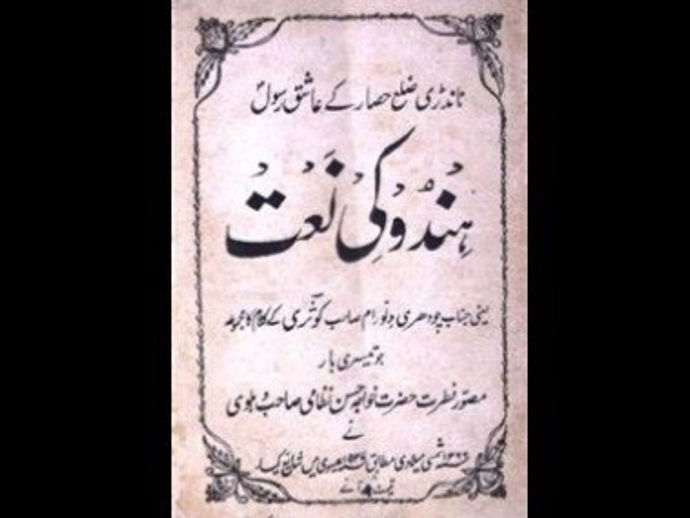 نانڈری ضلع حصار کے عاشق رسولؐ
ہندو کی نعت
یعنی جناب چودھری دلورام صاحب کوثری کے کلام کا مجموعہ
جو تیسری بار
مصور فطرت حضرت خواجہ حسن نظامی صاحب دہلوی
نے
میں شائع کیا